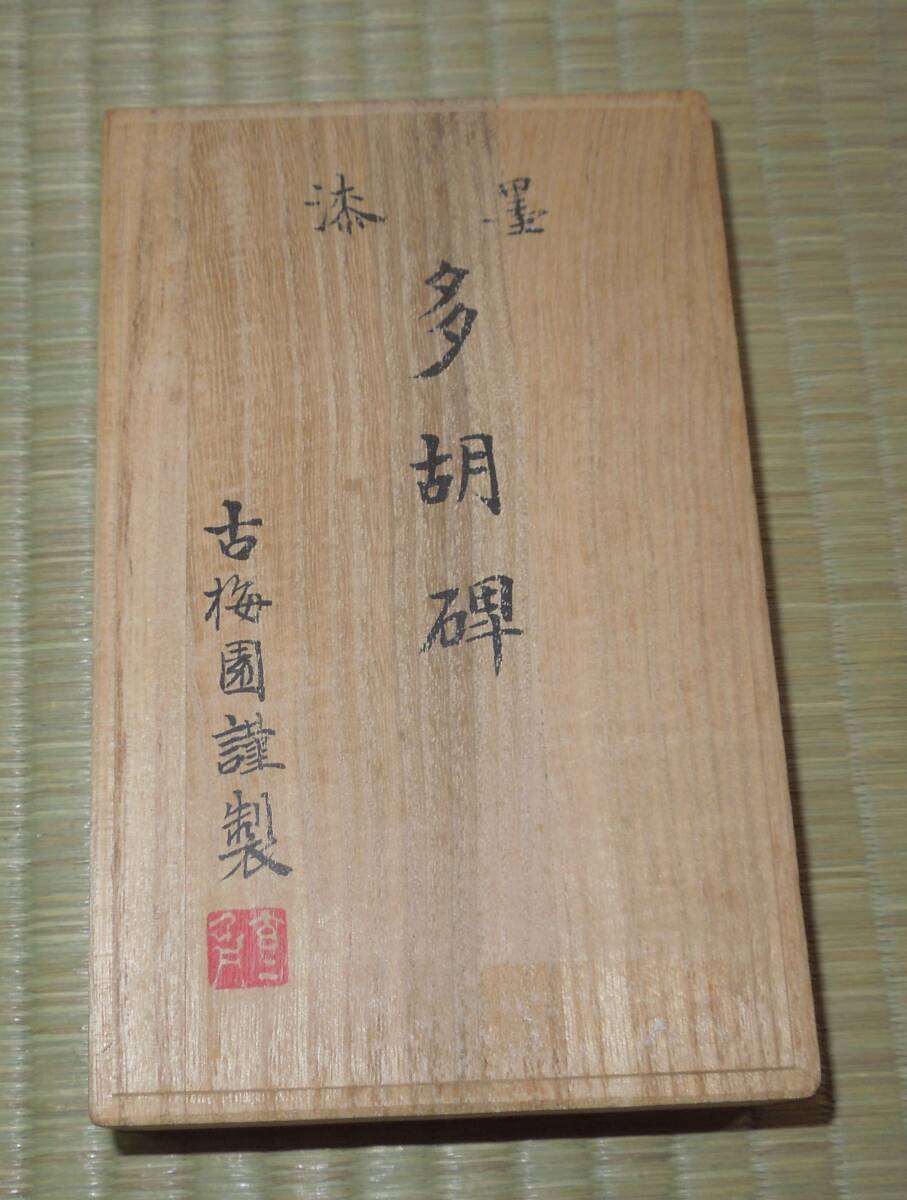 漆墨
多胡碑
古梅園謹製